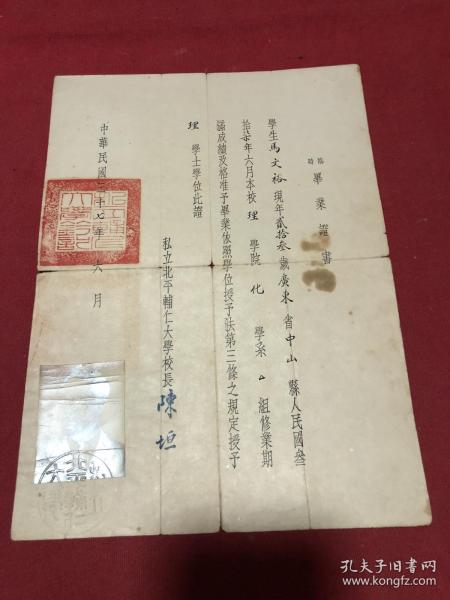 臨時畢業證書
學生馬文裕現年貳拾叁歲廣東省中山縣人民國叁
拾柒年六月本校理學院化學系 組修業期
滿成績及格准予畢業依照學位授予法第三條之規定授予
理學士學位此證
私立北平輔仁大學校長陳垣
中華民國三十七年六月
孔夫子旧书网
www.kongfz.com